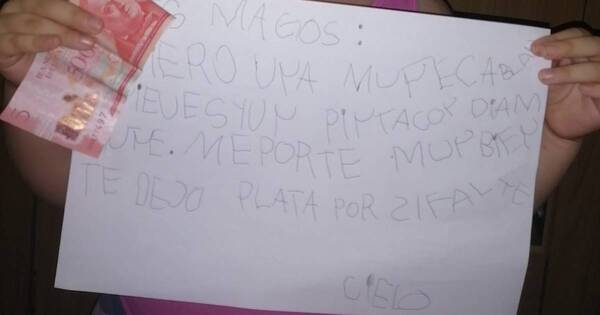 S MAGOS:
IERO UNA MUÑECA BLAN
NIEVES YUN PINTACOY DIAM
ANTE. MEPORTE MUY BIEN
TE DEJO PLATA POR SI FALTE
CIELO